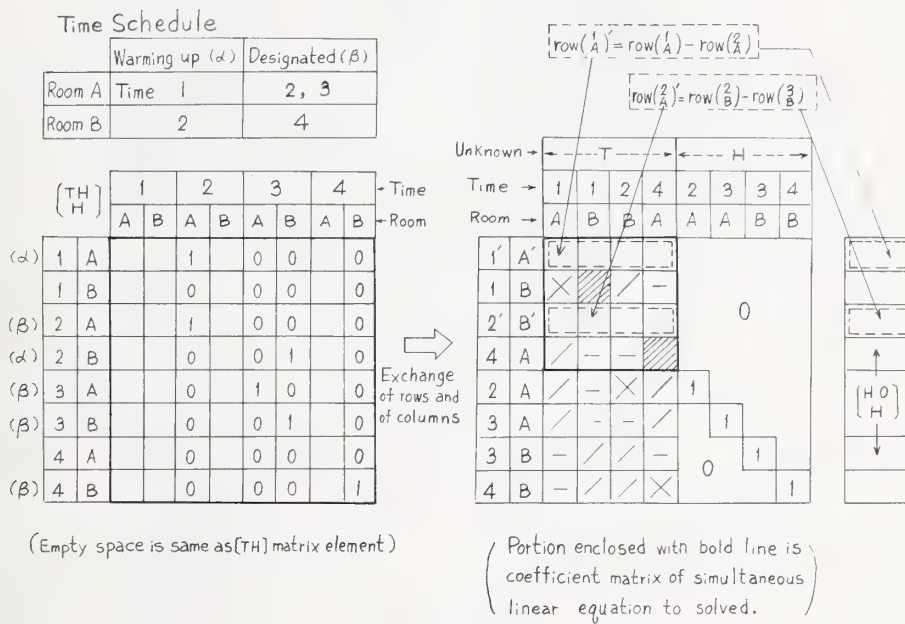 Time Schedule
Warming up (α) Designated (β)
Room A Time 1 2, 3
Room B 2 4
[TH H]
1 2 3 4 Time
A B A B A B A B Room
(α) 1 A 1 0 0 0
1 B 0 0 0 0
(β) 2 A 1 0 0 0
(α) 2 B 0 0 1 0
(β) 3 A 0 1 0 0
(β) 3 B 0 0 1 0
4 A 0 0 0 0
(β) 4 B 0 0 0 1
(Empty space is same as [TH] matrix element)
Exchange
of rows and
of columns
row(1 A)' = row(1 A) - row(2 A)
row(2 A)' = row(2 B) - row(3 B)
Unknown → T H
Time → 1 1 2 4 2 3 3 4
Room → A B B A A A B B
1' A'
1 B × / − 0
2' B'
4 A / − −
2 A / − × / 1
3 A / - − / 1
3 B − / / − 0 1
4 B − / / × 1
[HO H]
(Portion enclosed with bold line is
coefficient matrix of simultaneous
linear equation to solved.)